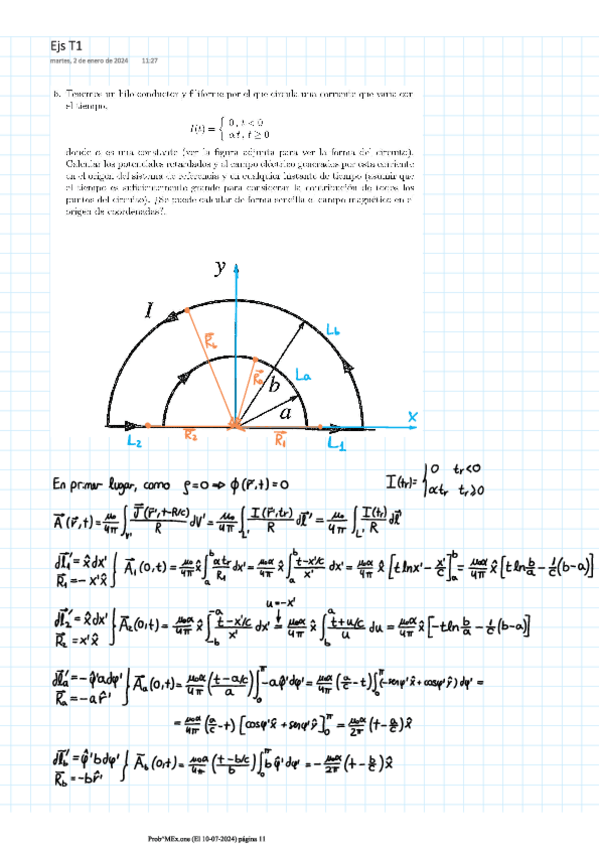 Ejs T1
martes, 2 de enero de 2024 11:27
6. Tenemos un hilo conductor y filiforme por el que circula una corriente que varía con
el tiempo,
I(t) = { 0, t < 0
αt, t ≥ 0
donde α es una constante (ver la figura adjunta para ver la forma del circuito).
Calcular los potenciales retardados y el campo eléctrico generados por esta corriente
en el origen del sistema de referencia y en cualquier instante de tiempo (asumir que
el tiempo es suficientemente grande para considerar la contribución de todos los
puntos del circuito). ¿Se puede calcular de forma sencilla el campo magnético en el
origen de coordenadas?.
y
I
R⃗b
Lb
R⃗a
La
b
a
x
L2
R⃗2
R⃗1
L1
En primer lugar, como ρ=0 ⇒ ϕ(r⃗,t)=0 I(tr)= { 0 tr<0
αtr tr≥0
A⃗(r⃗,t) = μ₀/4π ∫V' J⃗(r⃗',t-R/c)/R dV' = μ₀/4π ∫L' I(r⃗',tr)/R dl⃗' = μ₀/4π ∫L' I(tr)/R dl⃗'
dl⃗1' = x̂dx'
R⃗1 = -x'x̂ } A⃗1(0,t) = μ₀/4π x̂ ∫ₐᵇ αtr/R1 dx' = μ₀α/4π x̂ ∫ₐᵇ (t-x'/c)/x' dx' = μ₀α/4π x̂ [t lnx' - x'/c]ₐᵇ = μ₀α/4π x̂ [t ln b/a - 1/c (b-a)]
u=-x'
dl⃗2' = x̂dx'
R⃗2 = x'x̂ } A⃗2(0,t) = μ₀α/4π x̂ ∫₋b⁻ᵃ (t-x'/c)/x' dx' = μ₀α/4π x̂ ∫bᵃ (t+u/c)/u du = μ₀α/4π x̂ [-t ln b/a - 1/c (b-a)]
dl⃗a' = -φ̂'adφ'
R⃗a = -a r̂' } A⃗a(0,t) = μ₀α/4π ((t-a/c)/a) ∫₀^π -aφ̂'dφ' = μ₀α/4π (a/c - t) ∫₀^π (-senφ'x̂ + cosφ'ŷ) dφ' =
= μ₀α/4π (a/c - t) [cosφ'x̂ + senφ'ŷ]₀^π = μ₀α/2π (t - a/c) x̂
dl⃗b' = φ̂'bdφ'
R⃗b = -b r̂' } A⃗b(0,t) = μ₀α/4π ((t-b/c)/b) ∫₀^π b φ̂' dφ' = -μ₀α/2π (t - b/c) x̂
Prob^MEx.one (El 10-07-2024) página 11